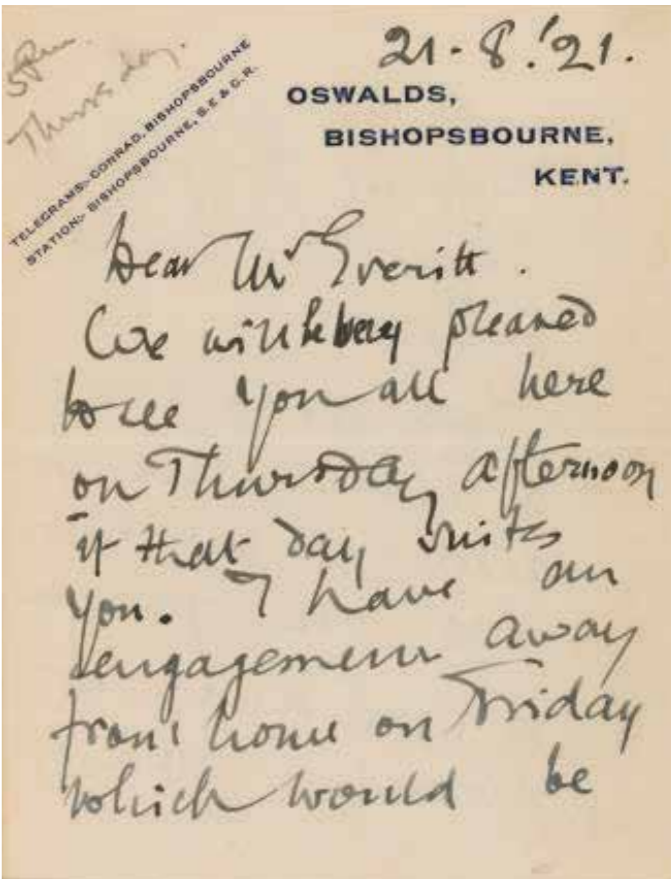 5 Pm.
Thursday.
TELEGRAMS:- CONRAD, BISHOPSBOURNE
STATION:- BISHOPSBOURNE, S.E & C.R.
21-8.'21.
OSWALDS,
BISHOPSBOURNE,
KENT.
Dear Mr Everitt.
We will be very pleased
to see you all here
on Thursday afternoon
if that day suits
you. I have an
engagement away
from home on Friday
which would be